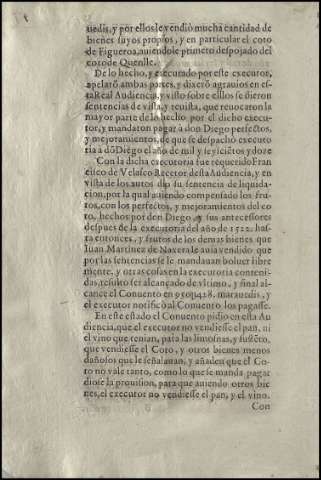 uedis, y por ellos se vendiò mucha cantidad de
bienes suyos propos, y en particular el coto
de Figueroa, auiendole primero despojado del
coto de Quenlle.
De lo hecho, y executado por este executor,
apelarõ ambas partes, y dixerõ agrauios en es-
ta Real Audiencia, y visto sobre ellos se dieron
sentencias de vista, y reuista, que reuocaron la
mayor parte de lo hecho por el dicho execu-
tor, y mandaron pagar à don Diego perfectos,
y mejoramientos, de que se despachò executo
ria à dõ Diego el año de mil y seyscientos y doze
Con la dicha executoria fue requerido Fran
cisco de Velasco Retor desta Audiencia, y en
vista de los autos dio su sentencia de liquida-
cion, por la qual auiendo compensado los fru-
tos, con los perfectos, y mejoramientos del co
to, hechos por don Diego, y sus antecessores
despues de la executoria del año de 1522. has-
ta entonces, y frutos de los demas bienes, que
Iuan Martinez de Naxera le auia vendido que
por las sentencias se le mandauan boluer libre
mente, y otras cosas en la executoria conteni-
das, resultò ser alcançado de vltimo, y final al-
cance el Conuento en marauedis, y
el executor notificò al Conuento los pagasse.
En este estado el Conuento pidio en esta Au
diencia, que el executor no vendiesse el pan, ni
el vino que tenian, para las limosnas, y sustẽto,
que vendiesse el Coto, y otros bienes menos
dañosos que le señalauan, y añaden que el Co-
to no vale tanto, como lo que se manda pagar
diose la prouision, para que auiendo otros bie
nes, el executor no vendiesse el pan, y el vino.
Con